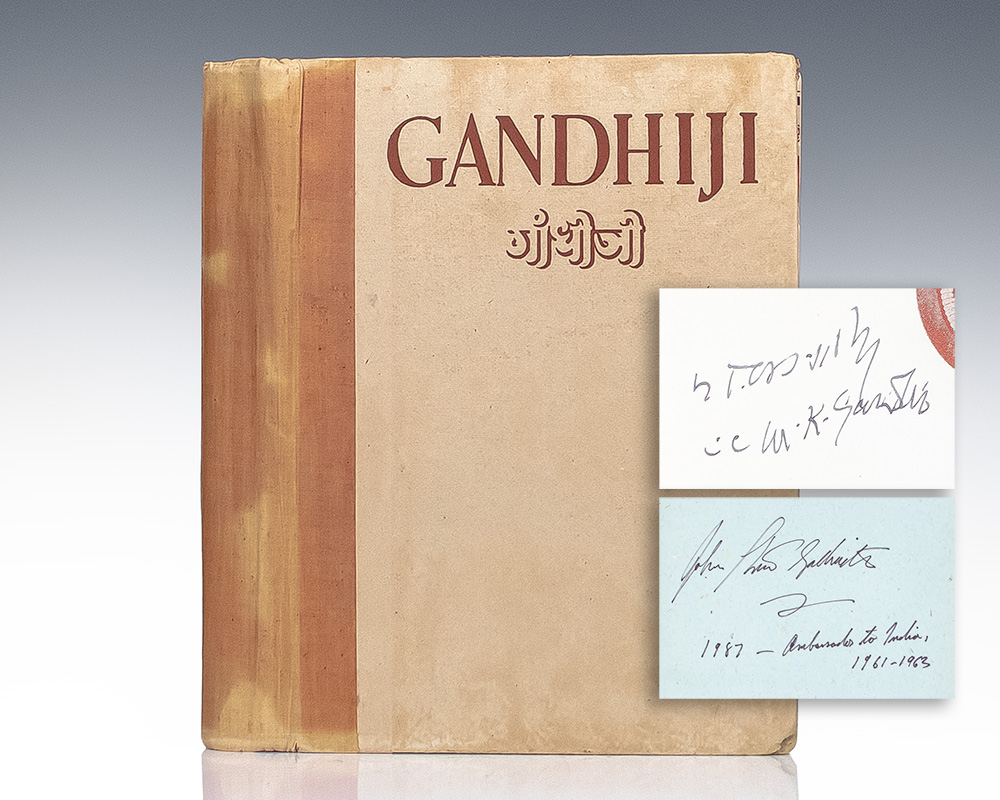 GANDHIJI
गांधीजी
M. K. Gandhi
John Kenneth Galbraith
1987 — Ambassador to India,
1961-1963